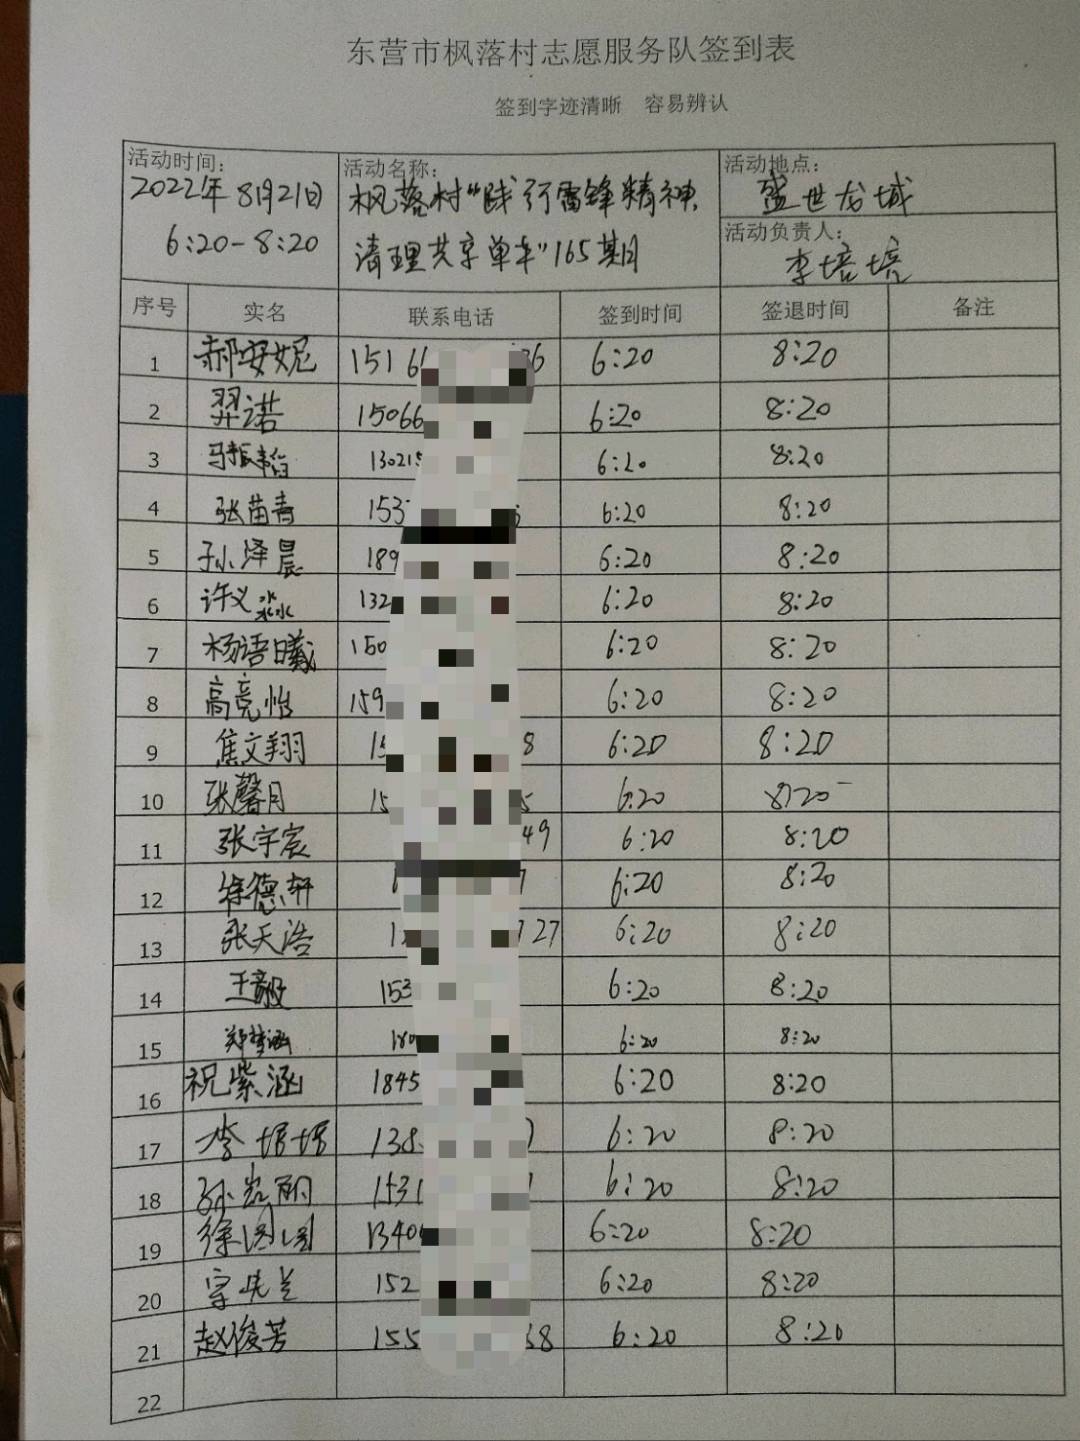 东营市枫落村志愿服务队签到表
签到字迹清晰 容易辨认
活动时间: 活动名称: 活动地点:
2022年8月21日 枫落村“践行雷锋精神, 盛世龙城
6:20-8:20 清理共享单车”165期 活动负责人:
李培培
序号 实名 联系电话 签到时间 签退时间 备注
1 郝安妮 15166 36 6:20 8:20
2 羿诺 15066 6:20 8:20
3 马振 13021 6:20 8:20
4 张苗青 153 6:20 8:20
5 孙泽晨 189 6:20 8:20
6 许义淼 132 6:20 8:20
7 杨语曦 150 6:20 8:20
8 高亮怡 159 6:20 8:20
9 焦文翔 15 8 6:20 8:20
10 张馨月 15 5 6:20 8:20
11 张宇宸 49 6:20 8:20
12 徐德轩 7 6:20 8:20
13 张天浩 1 727 6:20 8:20
14 王毅 153 6:20 8:20
15 郑梦涵 180 6:20 8:20
16 祝紫涵 1845 6:20 8:20
17 李培培 138 6:20 8:20
18 孙凯丽 1531 6:20 8:20
19 徐团团 1340 6:20 8:20
20 152 6:20 8:20
21 赵俊芳 155 68 6:20 8:20
22